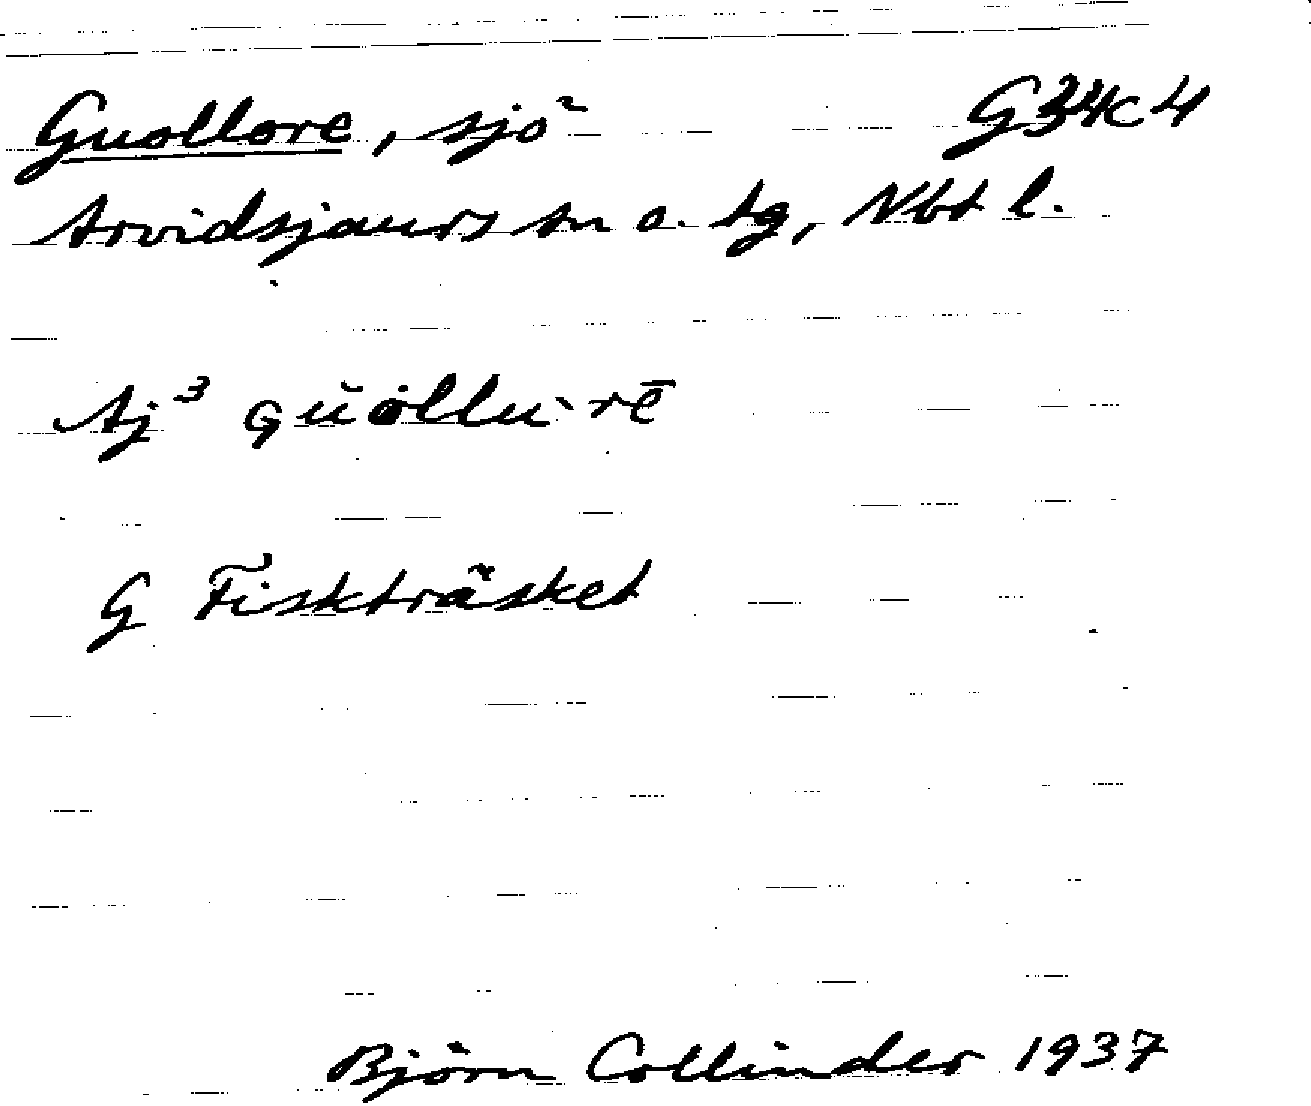 Guollore, sjö G34c4
Arvidsjaurs sn o. tg, Nbt l.
Aj³ gŭȯllu·rē
G Fiskträsket
Björn Collinder 1937